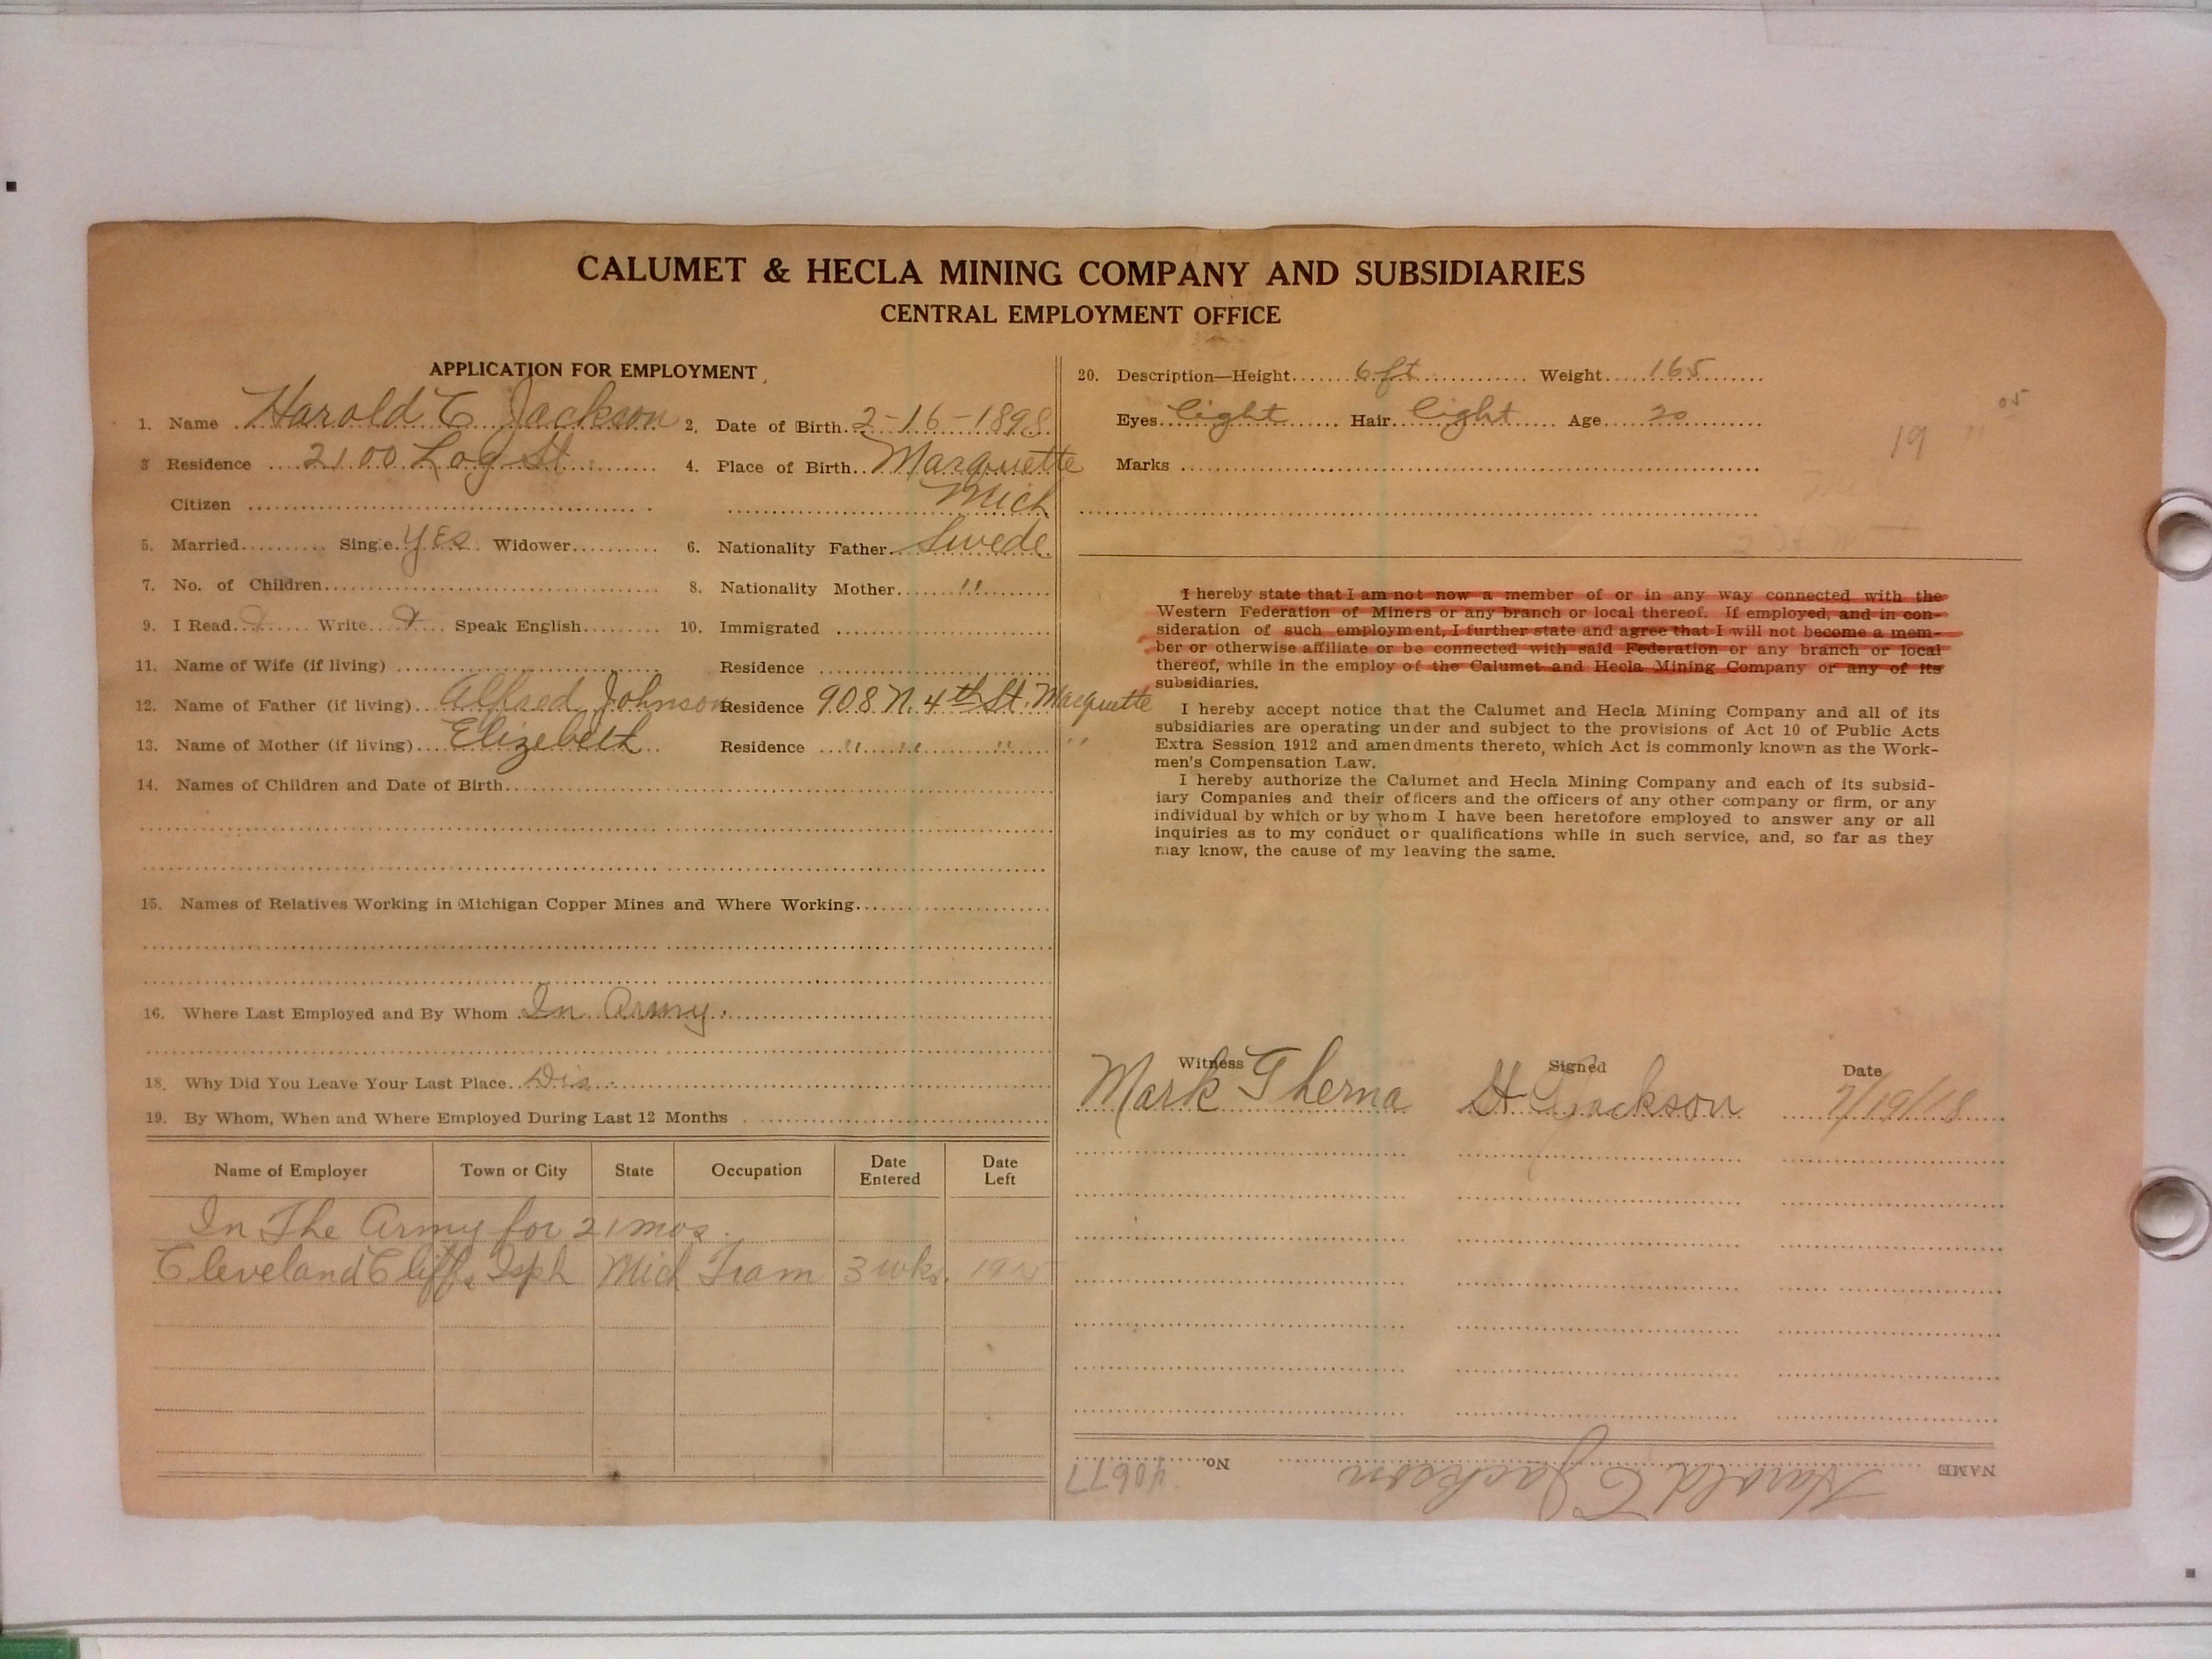 CALUMET & HECLA MINING COMPANY AND SUBSIDIARIES
CENTRAL EMPLOYMENT OFFICE
APPLICATION FOR EMPLOYMENT
1. Name Harold C Jackson 2. Date of Birth 2-16-1898
3 Residence 2100 Log St 4. Place of Birth Marquette
Citizen Mich
5. Married Single Yes Widower 6. Nationality Father Swede
7. No. of Children 8. Nationality Mother "
9. I Read Write Speak English 10. Immigrated
11. Name of Wife (if living) Residence
12. Name of Father (if living) Alfred Johnson Residence 908 N. 4th St. Marquette
13. Name of Mother (if living) Elizebeth Residence " " " "
14. Names of Children and Date of Birth
15. Names of Relatives Working in Michigan Copper Mines and Where Working
16. Where Last Employed and By Whom In Army.
18. Why Did You Leave Your Last Place Dis.
19. By Whom, When and Where Employed During Last 12 Months
Name of Employer Town or City State Occupation Date Entered Date Left
In The Army for 21 mos.
Cleveland Cliffs Isph Mich Tram 3 wks.
20. Description—Height 6 ft Weight 165
Eyes light Hair light Age 20
Marks
19 "
I hereby state that I am not now a member of or in any way connected with the
Western Federation of Miners or any branch or local thereof. If employed, and in con-
sideration of such employment, I further state and agree that I will not become a mem-
ber or otherwise affiliate or be connected with said Federation or any branch or local
thereof, while in the employ of the Calumet and Hecla Mining Company or any of its
subsidiaries.
I hereby accept notice that the Calumet and Hecla Mining Company and all of its
subsidiaries are operating under and subject to the provisions of Act 10 of Public Acts
Extra Session 1912 and amendments thereto, which Act is commonly known as the Work-
men's Compensation Law.
I hereby authorize the Calumet and Hecla Mining Company and each of its subsid-
iary Companies and their officers and the officers of any other company or firm, or any
individual by which or by whom I have been heretofore employed to answer any or all
inquiries as to my conduct or qualifications while in such service, and, so far as they
may know, the cause of my leaving the same.
Witness Signed Date
Mark Therna H Jackson /19/18
NAME Harold C Jackson No. 40677